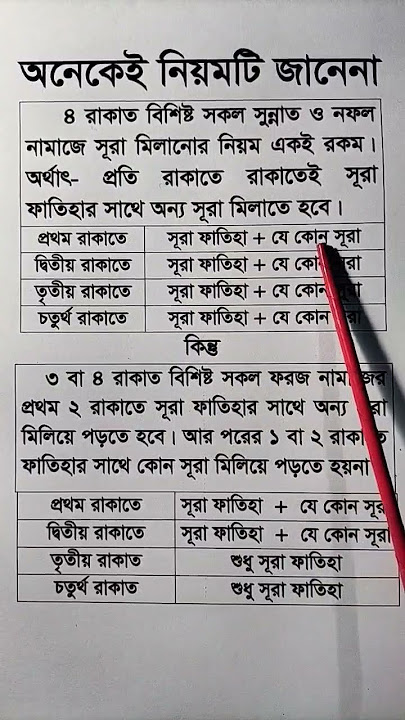 অনেকেই নিয়মটি জানেনা
৪ রাকাত বিশিষ্ট সকল সুন্নাত ও নফল
নামাজে সূরা মিলানোর নিয়ম একই রকম।
অর্থাৎ- প্রতি রাকাতে রাকাতেই সূরা
ফাতিহার সাথে অন্য সূরা মিলাতে হবে।
প্রথম রাকাতে সূরা ফাতিহা + যে কোন সূরা
দ্বিতীয় রাকাতে সূরা ফাতিহা + যে কোন সূরা
তৃতীয় রাকাতে সূরা ফাতিহা + যে কোন সূরা
চতুর্থ রাকাতে সূরা ফাতিহা + যে কোন সূরা
কিন্তু
৩ বা ৪ রাকাত বিশিষ্ট সকল ফরজ নামাজের
প্রথম ২ রাকাতে সূরা ফাতিহার সাথে অন্য সূরা
মিলিয়ে পড়তে হবে। আর পরের ১ বা ২ রাকাতে
ফাতিহার সাথে কোন সূরা মিলিয়ে পড়তে হয়না
প্রথম রাকাতে সূরা ফাতিহা + যে কোন সূরা
দ্বিতীয় রাকাতে সূরা ফাতিহা + যে কোন সূরা
তৃতীয় রাকাত শুধু সূরা ফাতিহা
চতুর্থ রাকাত শুধু সূরা ফাতিহা